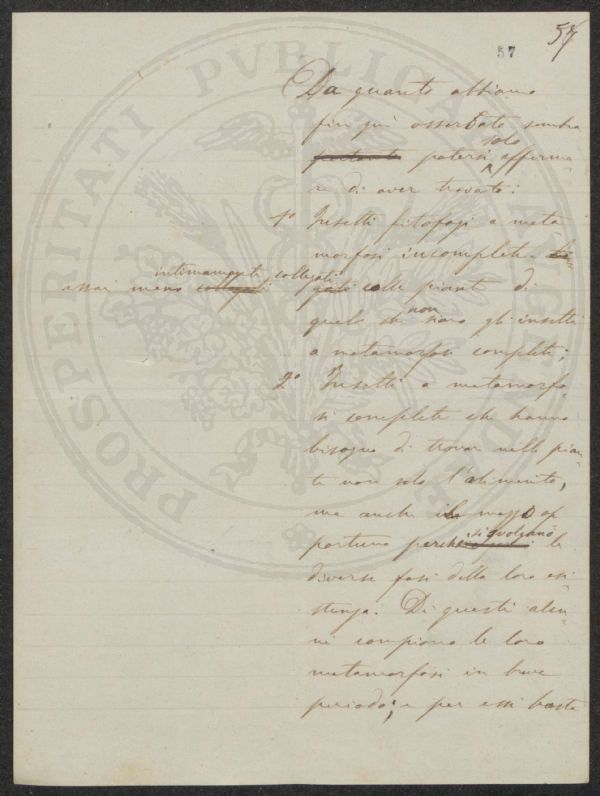 57
57
Da quanto abbiamo
fin quì osservato sembra
soltanto potersi solo afferma
re di aver trovato:
1º Insetti fitofagi a meta
morfosi incompleta
assai meno collegati intimamente collegati gati colle piante di
quelo che non siano gli insetti
a metamorfosi completa;
2º Insetti a metamorfo
si completa che hanno
bisogno di trovar nelle pian
te non solo l'alimento,
ma anche il mezzo op
portuno perchè si svolgano le
diverse fasi della loro esi
stenza. Di questi alcu
ni compiono le loro
metamorfosi in breve
periodo; e per essi basta
PROSPERITATI PVBLICAE AVGENDAE